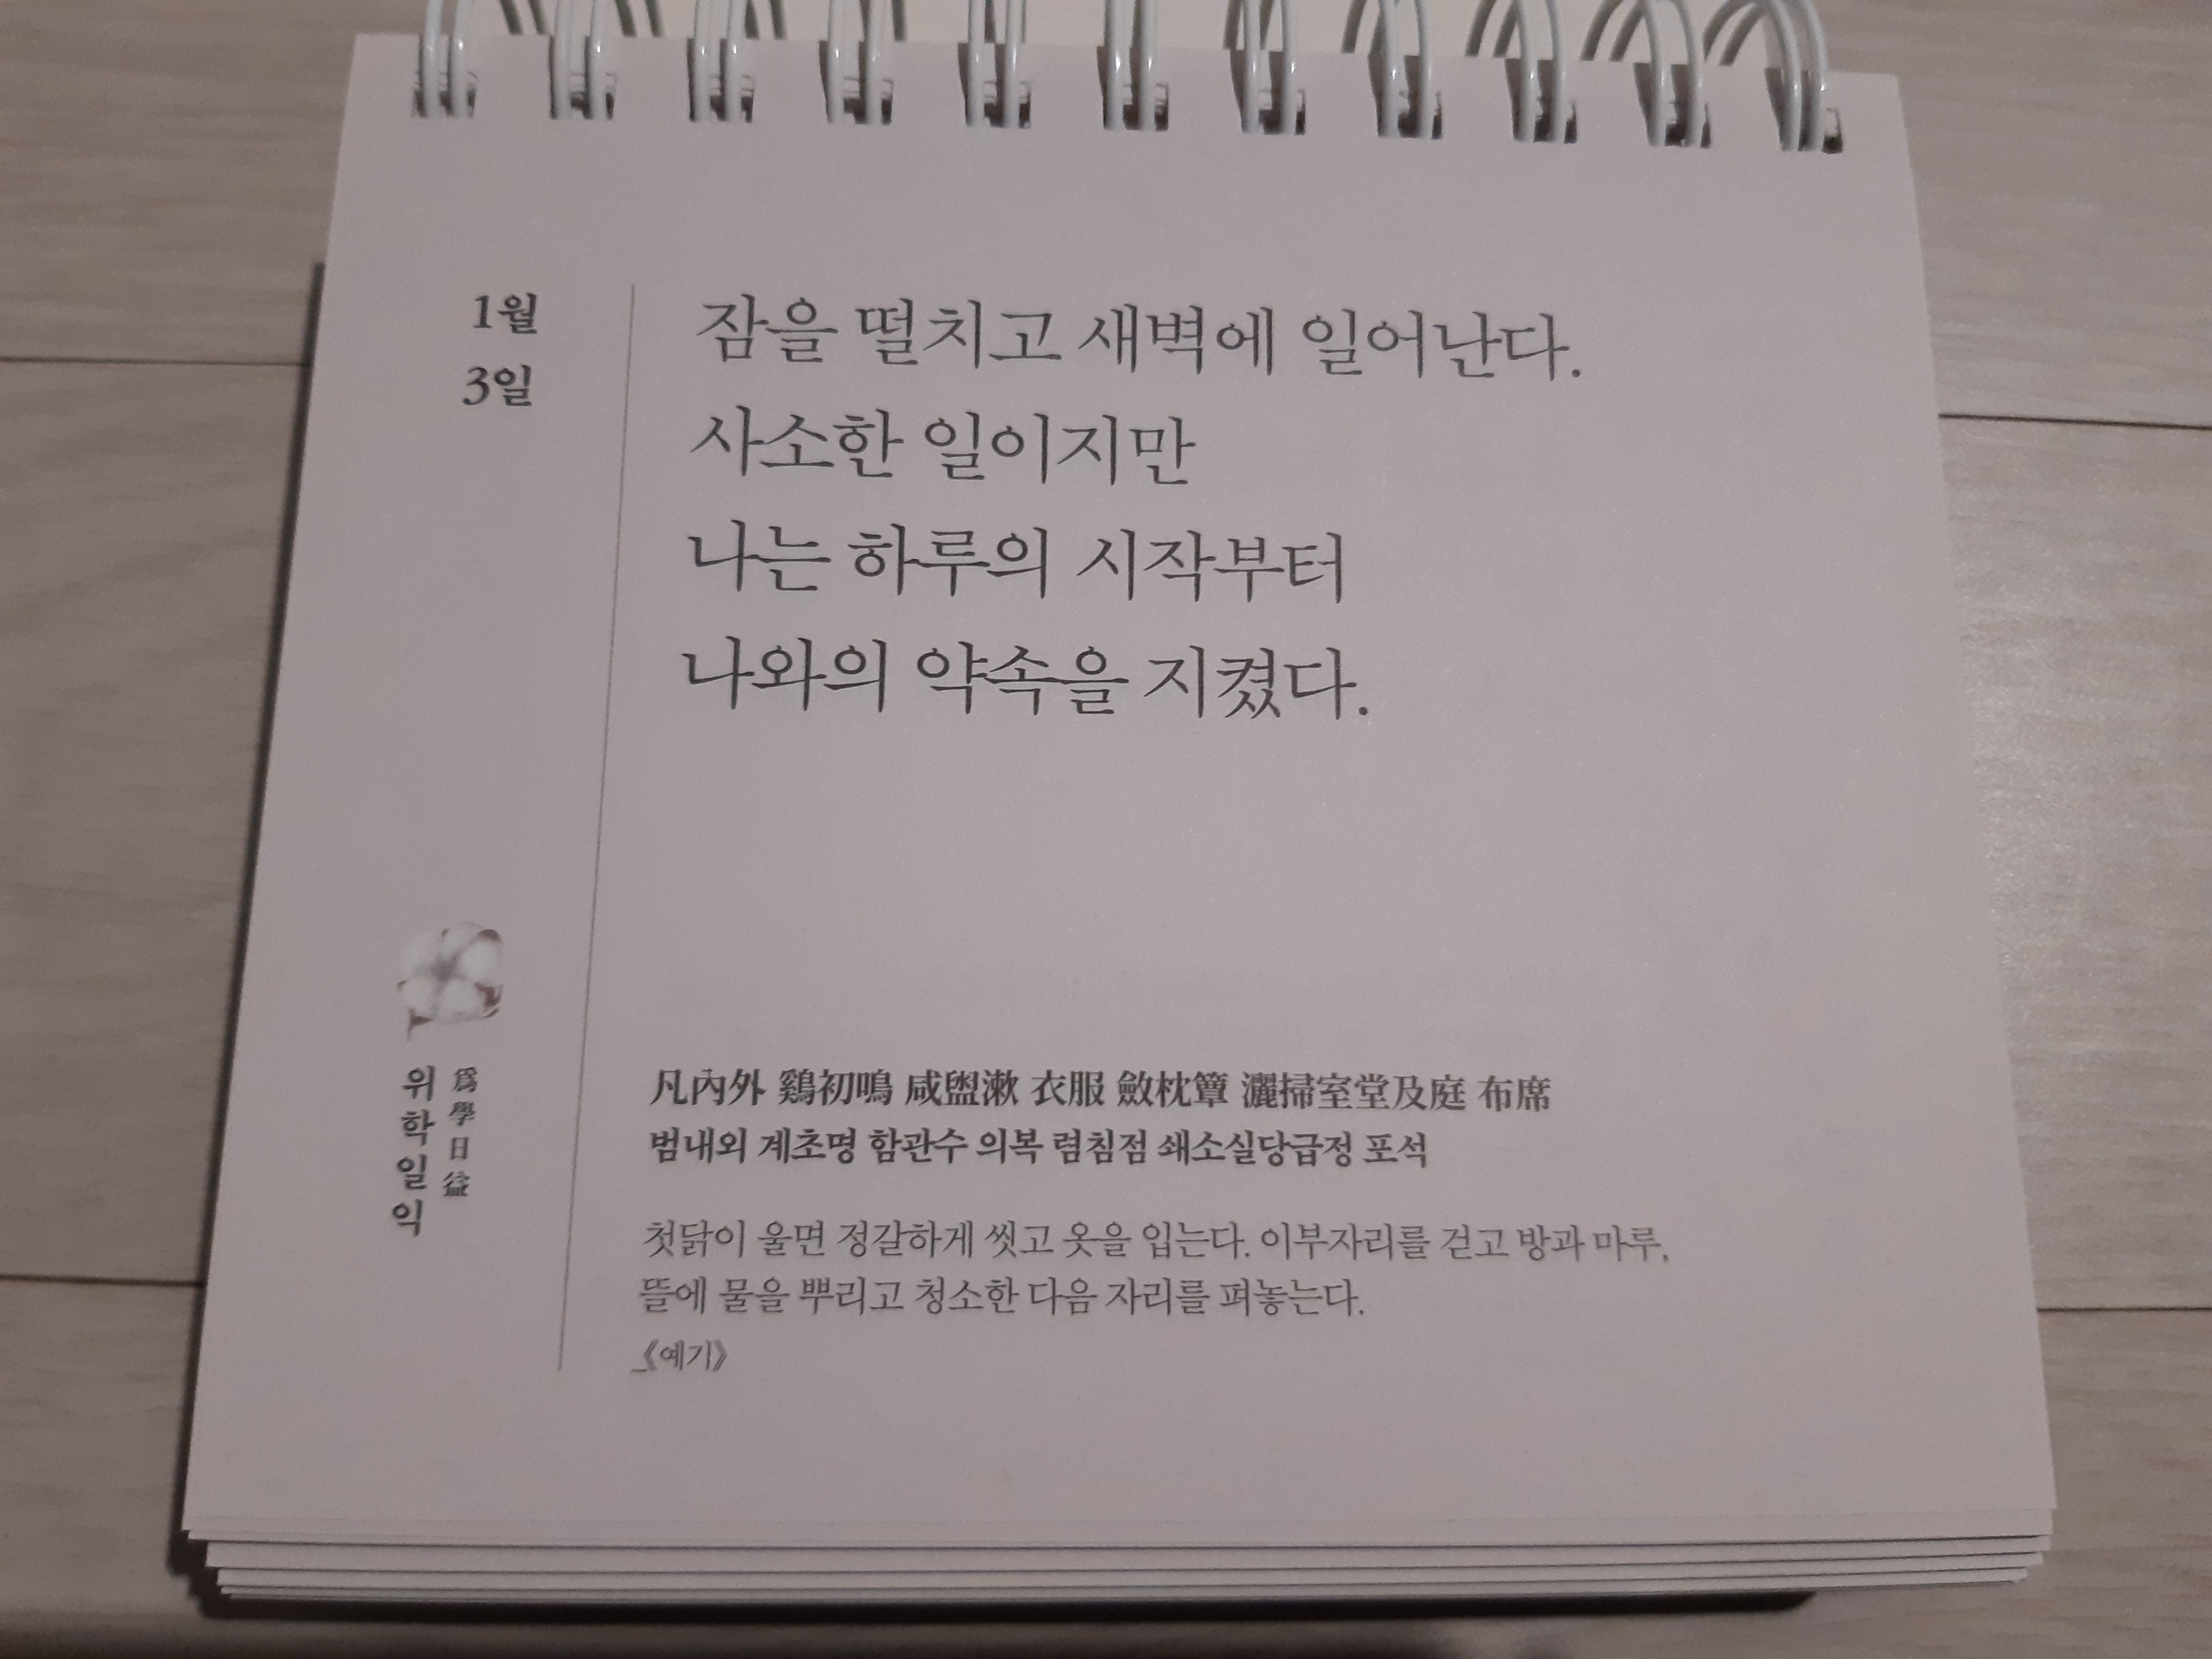 1월
3일
잠을 떨치고 새벽에 일어난다.
사소한 일이지만
나는 하루의 시작부터
나와의 약속을 지켰다.
爲學日益
위학일익
凡內外 鷄初鳴 咸盥漱 衣服 斂枕簟 灑掃室堂及庭 布席
범내외 계초명 함관수 의복 렴침점 쇄소실당급정 포석
첫닭이 울면 정갈하게 씻고 옷을 입는다. 이부자리를 걷고 방과 마루,
뜰에 물을 뿌리고 청소한 다음 자리를 펴놓는다.
_《예기》